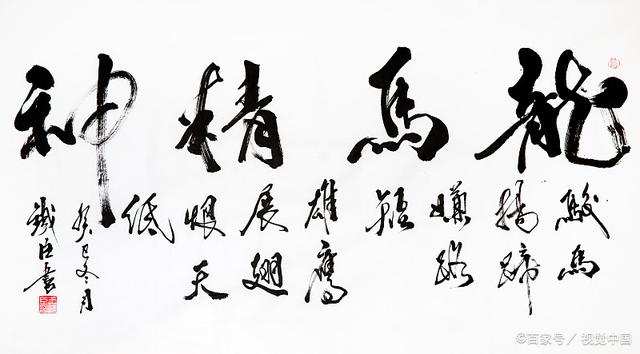 龍馬精神
駿馬
揚蹄
嫌路
短
雄鷹
展翅
恨天
低
癸巳冬月
鐵臣書
©百家号／视觉中国